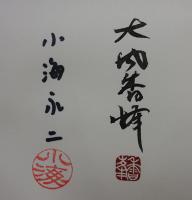 大内香峰
小海永二
小海